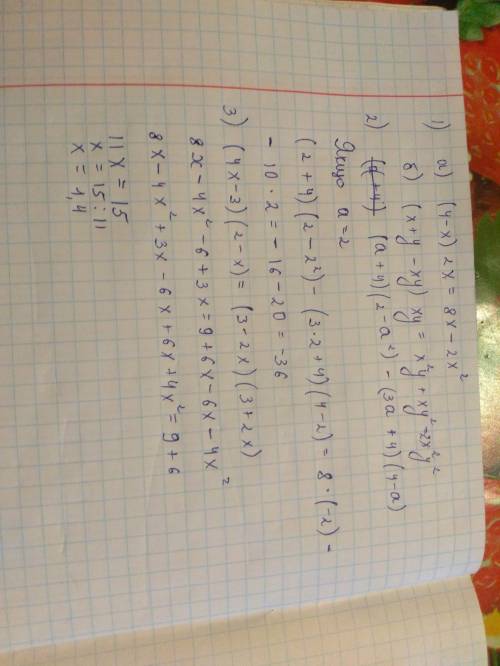 1) а) (4-x) 2x = 8x - 2x²
б) (x+y - xy) xy = x²y + xy² - 2x²y²
2) (a+4) (a+4)(2-a²) - (3a+4)(4-a)
Якщо a=2
(2+4)(2-2²) - (3·2+4)(4-2) = 8·(-2) -
- 10·2 = -16-20 = -36
3) (4x-3)(2-x) = (3-2x)(3+2x)
8x-4x²-6+3x = 9+6x-6x-4x²
8x-4x²+3x-6x+6x+4x² = 9+6
11x = 15
x = 15:11
x = 1,4